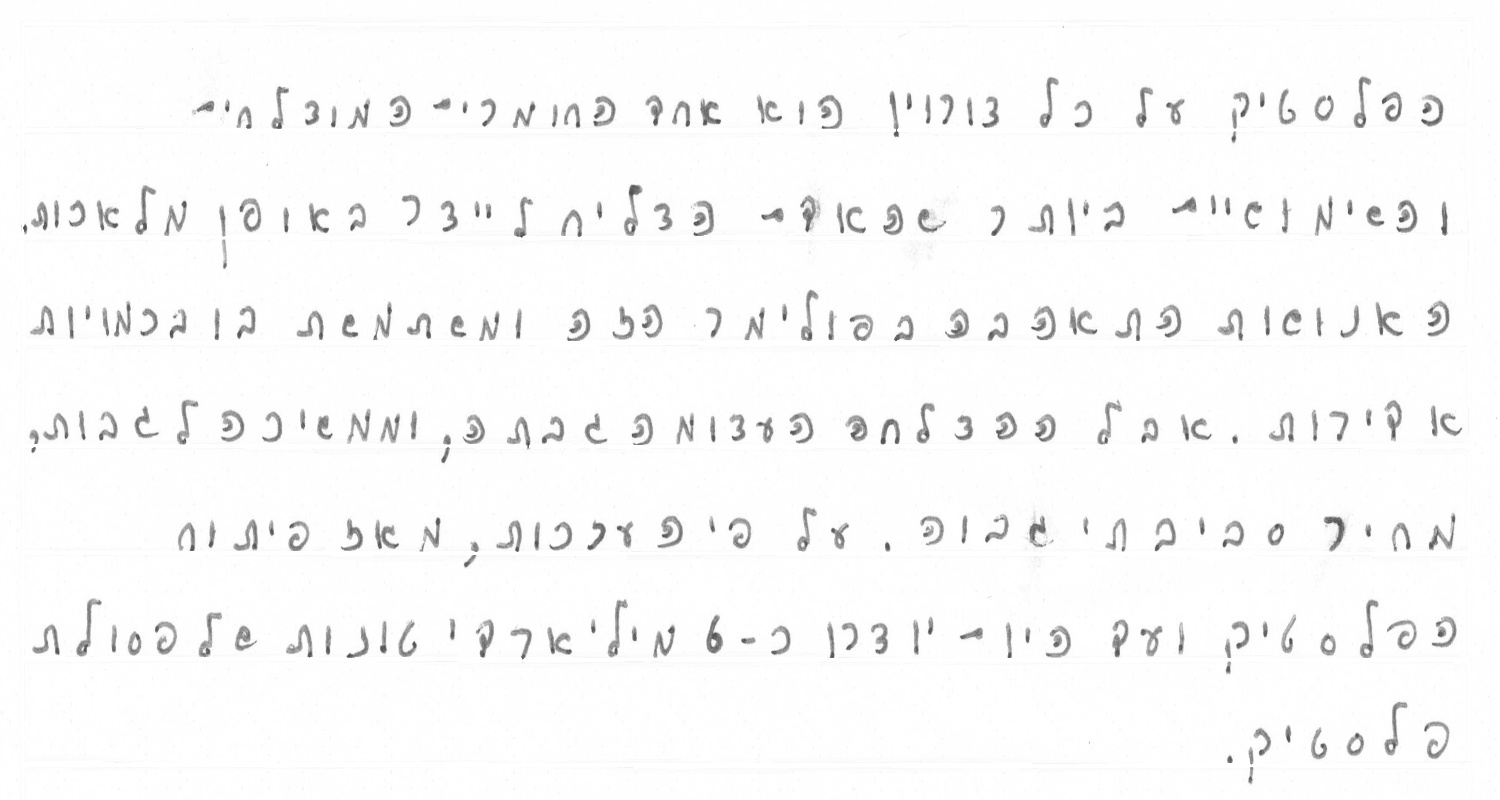 הפלסטיק על כל צורותיו הוא אחד החומרים המוצלחים
והשימושיים ביותר שהאדם הצליח לייצר באופן מלאכותי.
האנושות התאהבה בפולימר הזה ומשתמשת בו בכמויות
אדירות. אבל ההצלחה העצומה גבתה, וממשיכה לגבות,
מחיר סביבתי גבוה. על פי הערכות, מאז פיתוח
הפלסטיק ועד היום יוצרו כ-6 מיליארדי טונות של פסולת
פלסטיק.